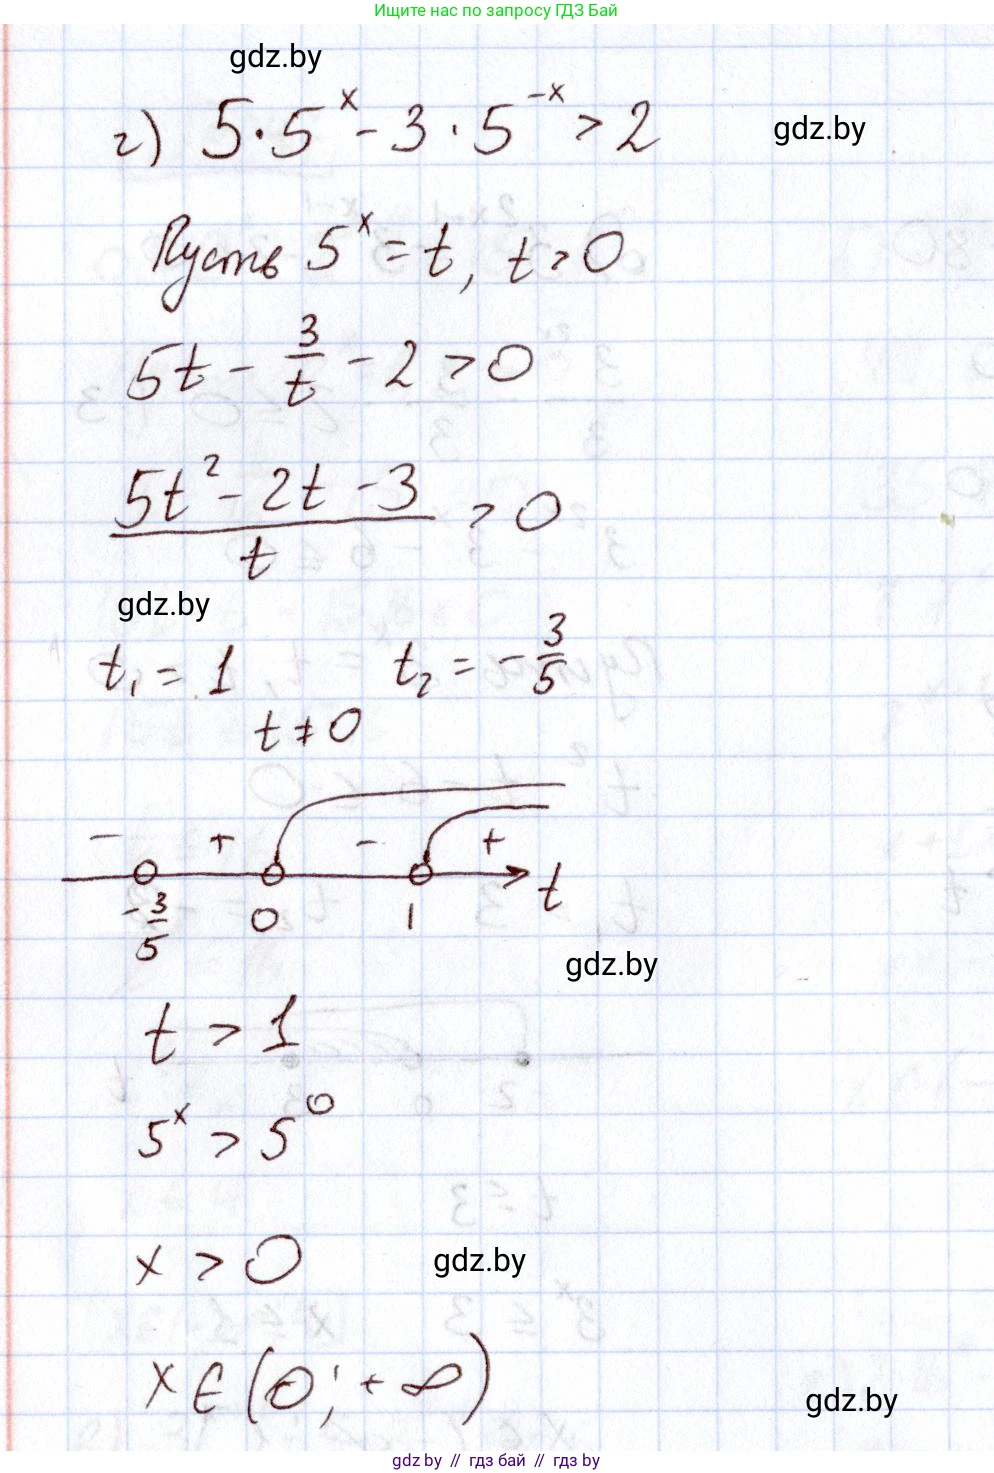 Ищите нас по запросу ГДЗ Бай
gdz.by
г) 5·5^x - 3·5^{-x} > 2
gdz.by
Пусть 5^x = t, t > 0
5t - 3/t - 2 > 0
(5t² - 2t - 3)/t > 0
gdz.by
t₁ = 1 t₂ = -3/5
t ≠ 0
- + - +
-3/5 0 1 t
gdz.by
t > 1
5^x > 5^0
x > 0
gdz.by
x ∈ (0; +∞)
gdz.by
gdz.by // гдз бай // гдз by